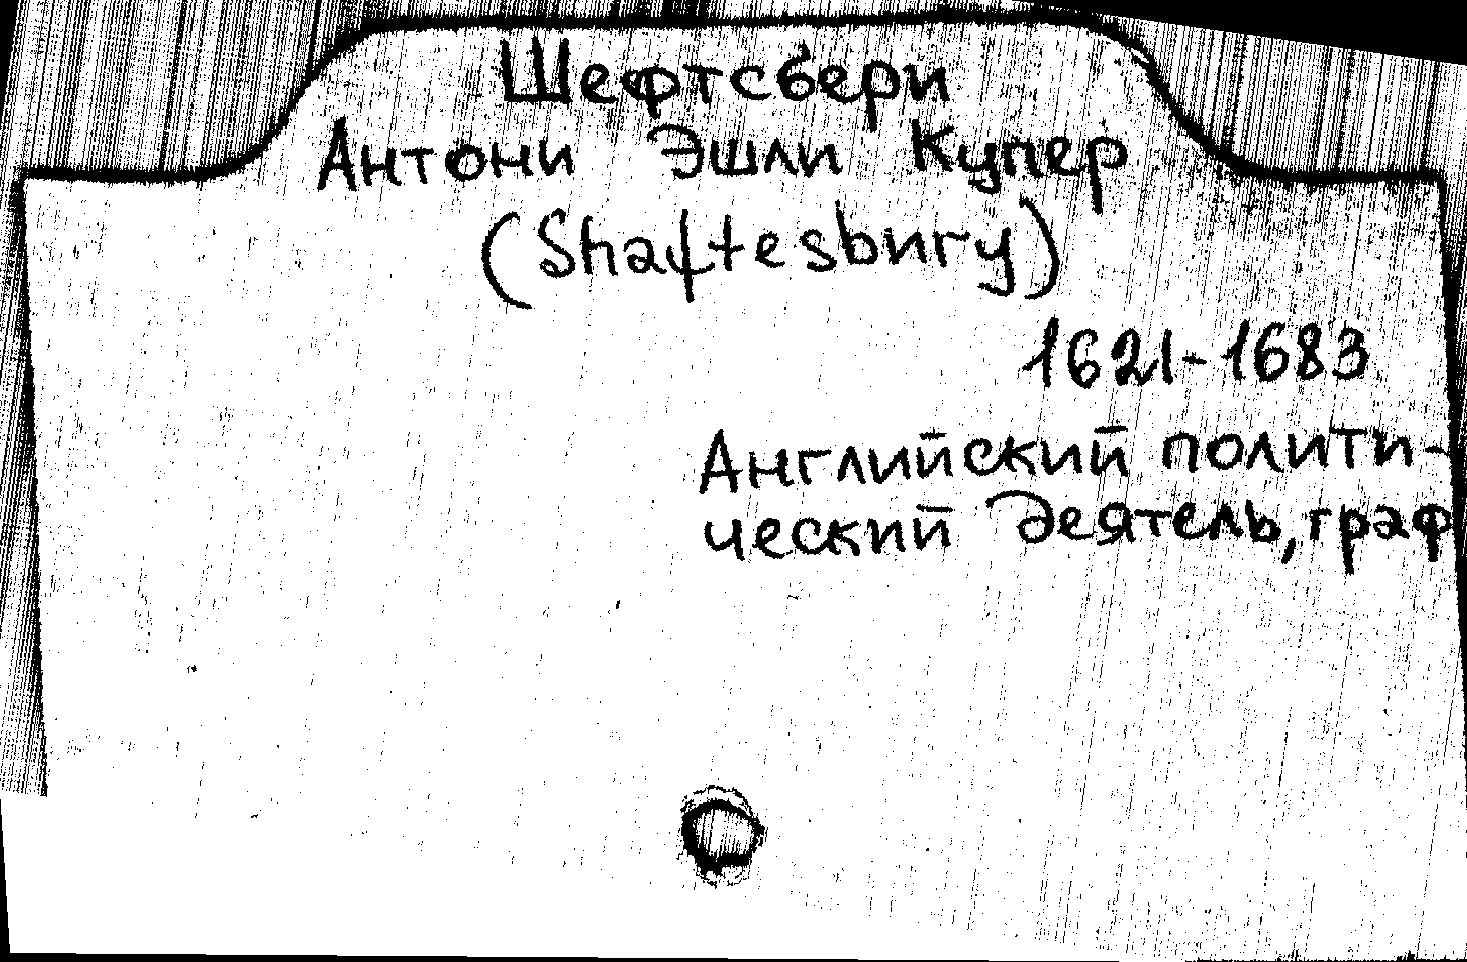 Шефтсбери
Антони Эшли Купер
(Shaftesbury)
1621-1683
Английский полити-
ческий деятель, граф